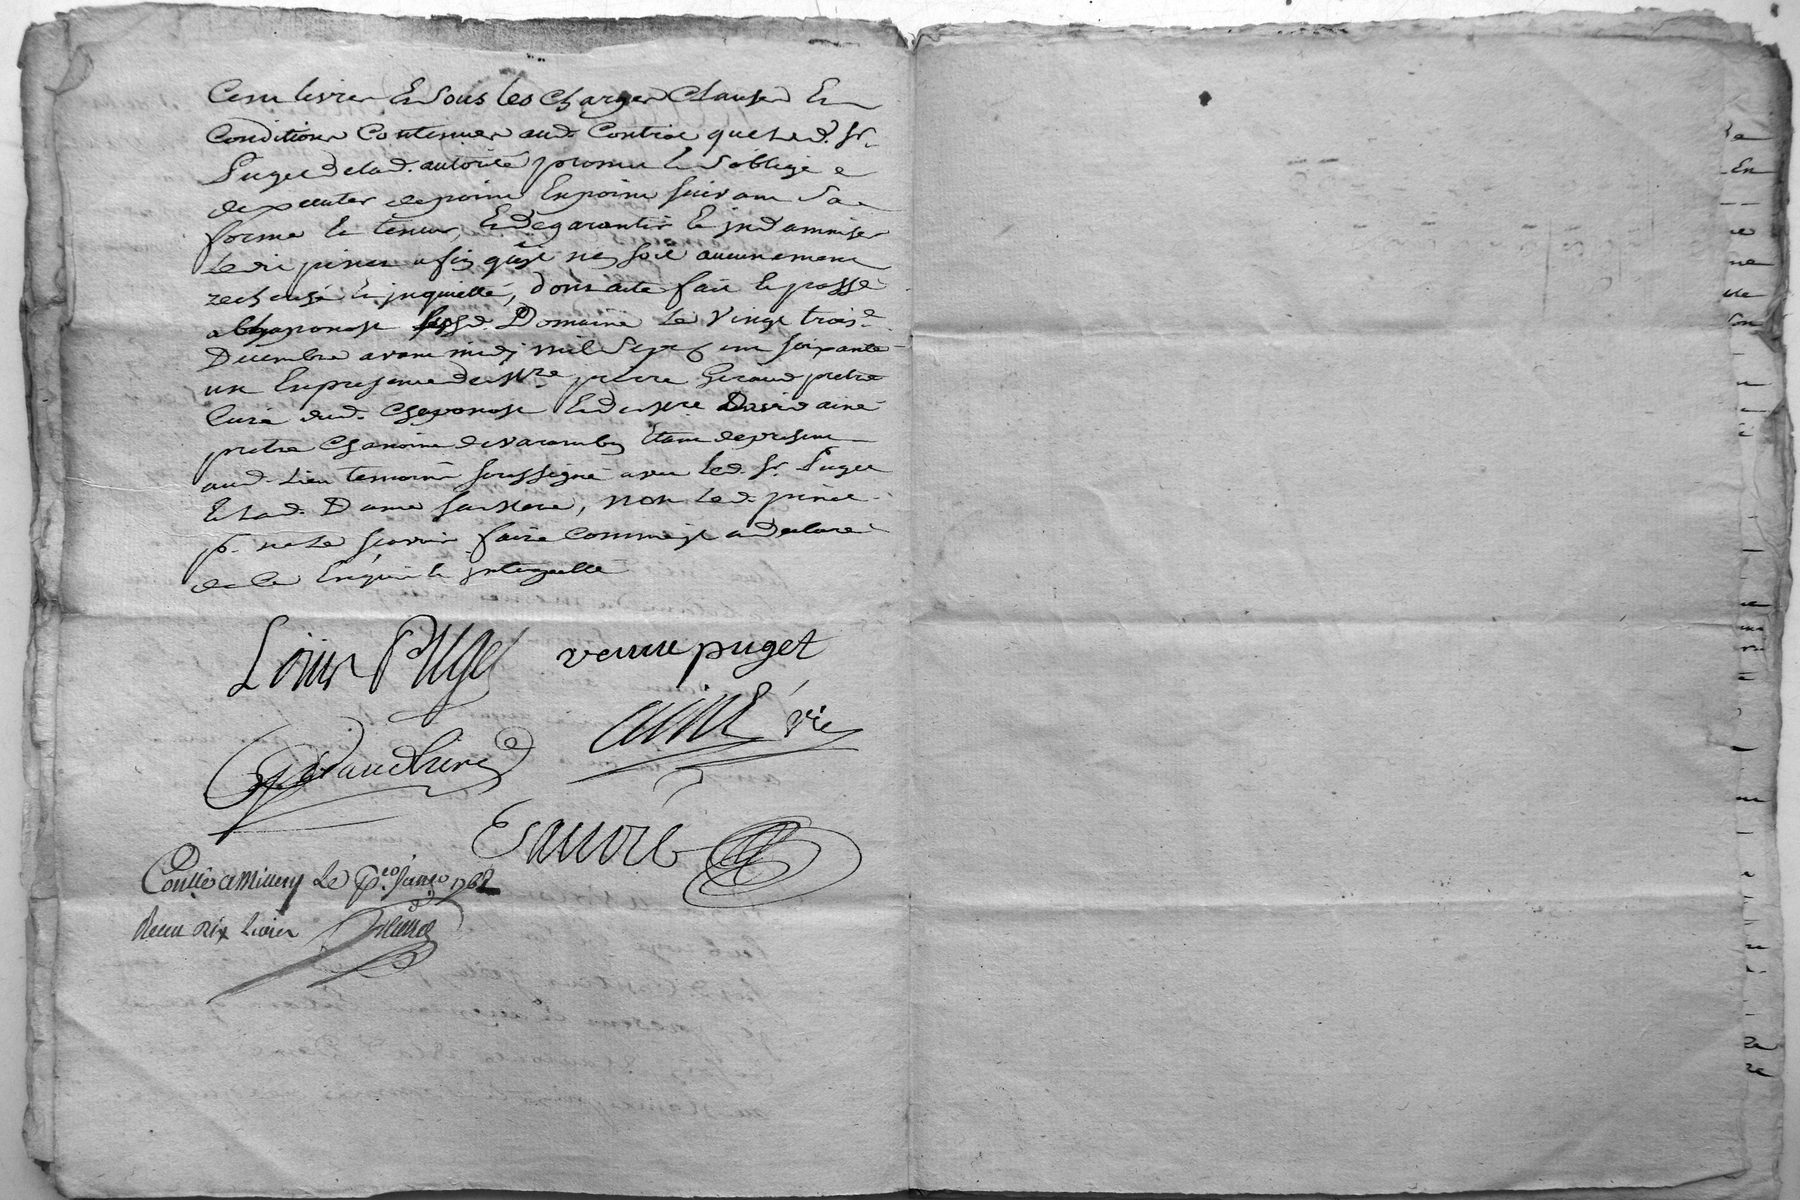 Cens livres Et sous les charges Clauses Et
Conditions Contenues aud. Contrat que led. Sr.
Puget de lad. autorité promet et s'oblige
d'exécuter de point En point suivant sa
forme et teneur, Et de garantir et jndamniser
afin qu'il n'en soit aucunement
recherché et jnquietté, dont acte fait et passé
a Chaponost Domaine Le Vingt trois
Décembre avant midj mil Sept cent soixante
un En presence de Mre pierre Giraud prêtre
Curé dud. Chaponost Et de Mre David ainé
prêtre Chanoine de Varambon Etant de present
aud. Lieu temoins soussignés avec led. Sr. Puget
Et lad. Dame sa Mere, non led. pinet
p. ne le sçavoir faire comme jl a declaré
de ce Enquis et jnterpellé
Loüis Puget veuve puget
ainé
Giraud Curé
Controllé a Millery Le janvo 1762
Receu dix livres